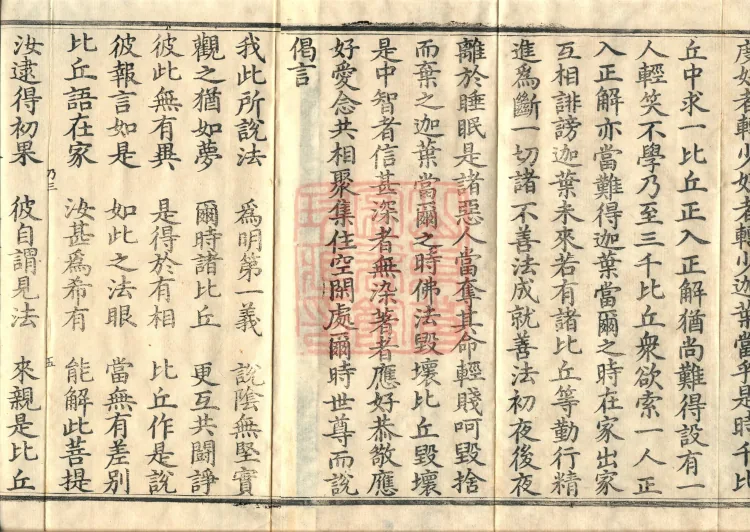 丘中求一比丘正入正解猶尚難得設有一
人輕笑不學乃至三千比丘眾欲索一人正
入正解亦當難得迦葉當爾之時在家出家
互相誹謗迦葉未來若有諸比丘等勤行精
進為斷一切諸不善法成就善法初夜後夜
離於睡眠是諸惡人當奪其命輕賤呵毀捨
而棄之迦葉當爾之時佛法毀壞比丘毀壞
是中智者信甚深者無染著者應好恭敬應
好愛念共相聚集住空閑處爾時世尊而說
偈言
我此所說法 為明第一義 說陰無堅實
觀之猶如夢 爾時諸比丘 更互共鬪諍
彼此無有異 是得於有相 比丘作是說
彼報言如是 如此之法眼 當無有差別
比丘語在家 汝甚為希有 能解此菩提
乃三 五
汝逮得初果 彼自謂見法 來親是比丘